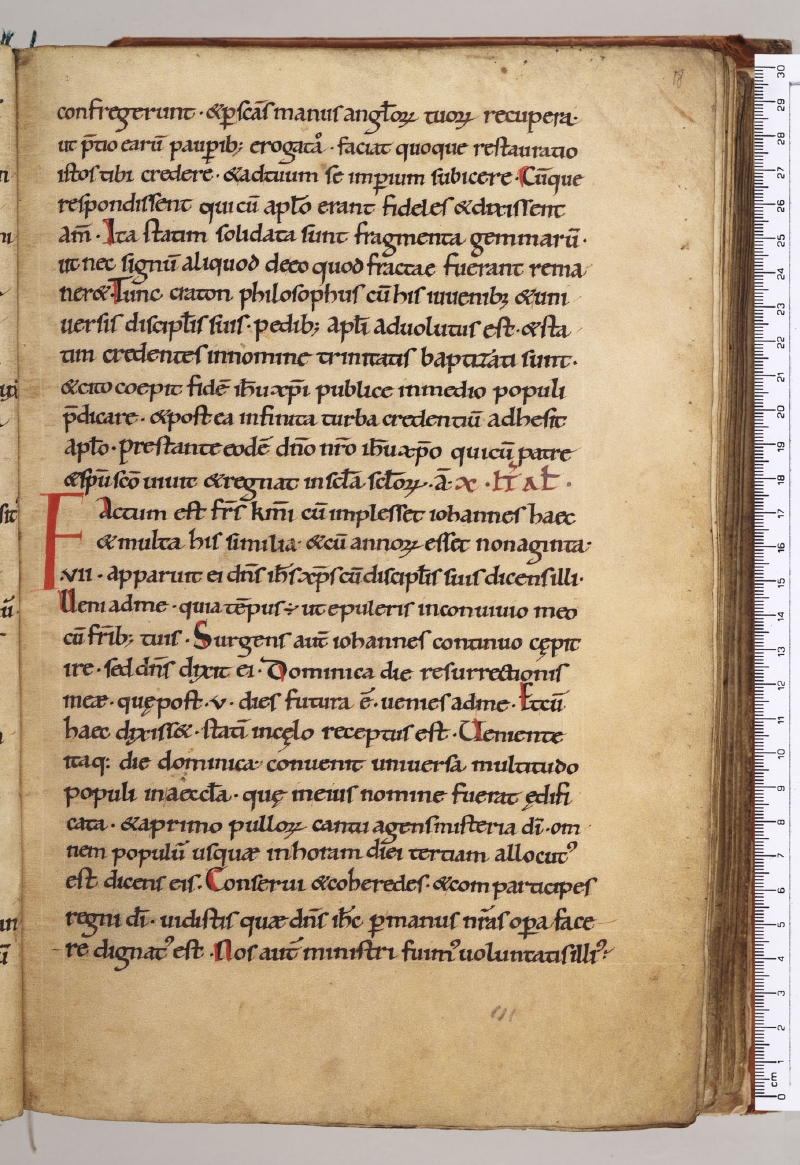 confregerunt · & p̱ scās manus angl̄oꝝ tuoꝝ recupera·
ut p̄tio earū paup̱ib; erogatā · faciat quoque restauratio
istos tibi credere · & ad tuum se imp̱ium subicere · Cūque
respondissent qui cū ap̄lo erant fideles & dixissent
am̄ · Ita statim solidata sunt fragmenta gemmarū ·
ut nec signū aliquod deeo quod fractae fuerant rema
ner& · Tunc craton philosophus cū his iuuenib; & uni
uersis discip̄lis suis · pedib; ap̄li aduolutus est · & sta
tim credentes innomine trinitatis baptizati sunt ·
& cito coepit fidē ih̄u xp̄i publice inmedio populi
p̄dicare · & post ea infinita turba credentiū adhesit
ap̄lo · prestante eodē dn̄o nr̄o ih̄u xp̄o qui cū patre
& sp̄u scō uiuit & regnat in scl̄a scl̄oꝝ · ā
Factum est fr̄s km̄i cū implesset iohannes haec
& multa his similia · & cū annoꝝ esset nonaginta ·
.vii · apparuit ei dn̄s ih̄s xp̄s cū discip̄lis suis dicens illi ·
Ueni adme · quia tēpus ÷ ut epuleris inconuiuio meo
cū fr̄ib; tuis · Surgens aut̄ iohannes continuo cępit
ire · sed dn̄s dixit ei · Dominica die resurrectionis
meæ · quę post · v · dies futura ē · uenies adme · Et cū
haec dixiss& · statī incęlo receptus est · Ueniente
itaq: die dominica conuenit uniuersa multitudo
populi inaeccl̄a · quę ineius nomine fuerat ędifi
cata · & aprimo pulloꝝ cantu agens misteria dī · om
nem populū usquæ inhoram diei tertiam allocutꝰ
est dicens eis · Conserui & coheredes · & comparticipes
regni dī · uidistis quæ dn̄s ih̄c p̱ manus nr̄as op̱a face
re dignatꝰ est · Nos aut̄ ministri fuimꝰ uoluntatis illiꝰ